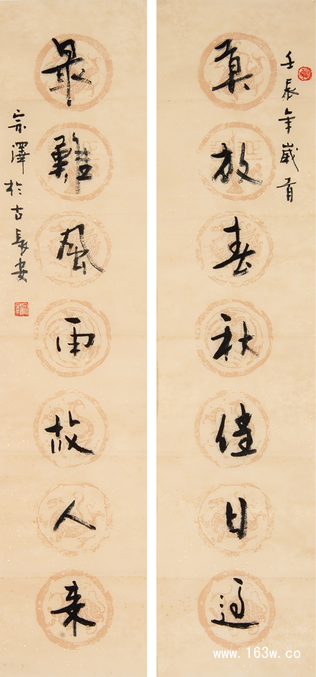 壬辰年歲首
莫放春秋佳日過
最難風雨故人来
宗澤於古長安
www.163w.co